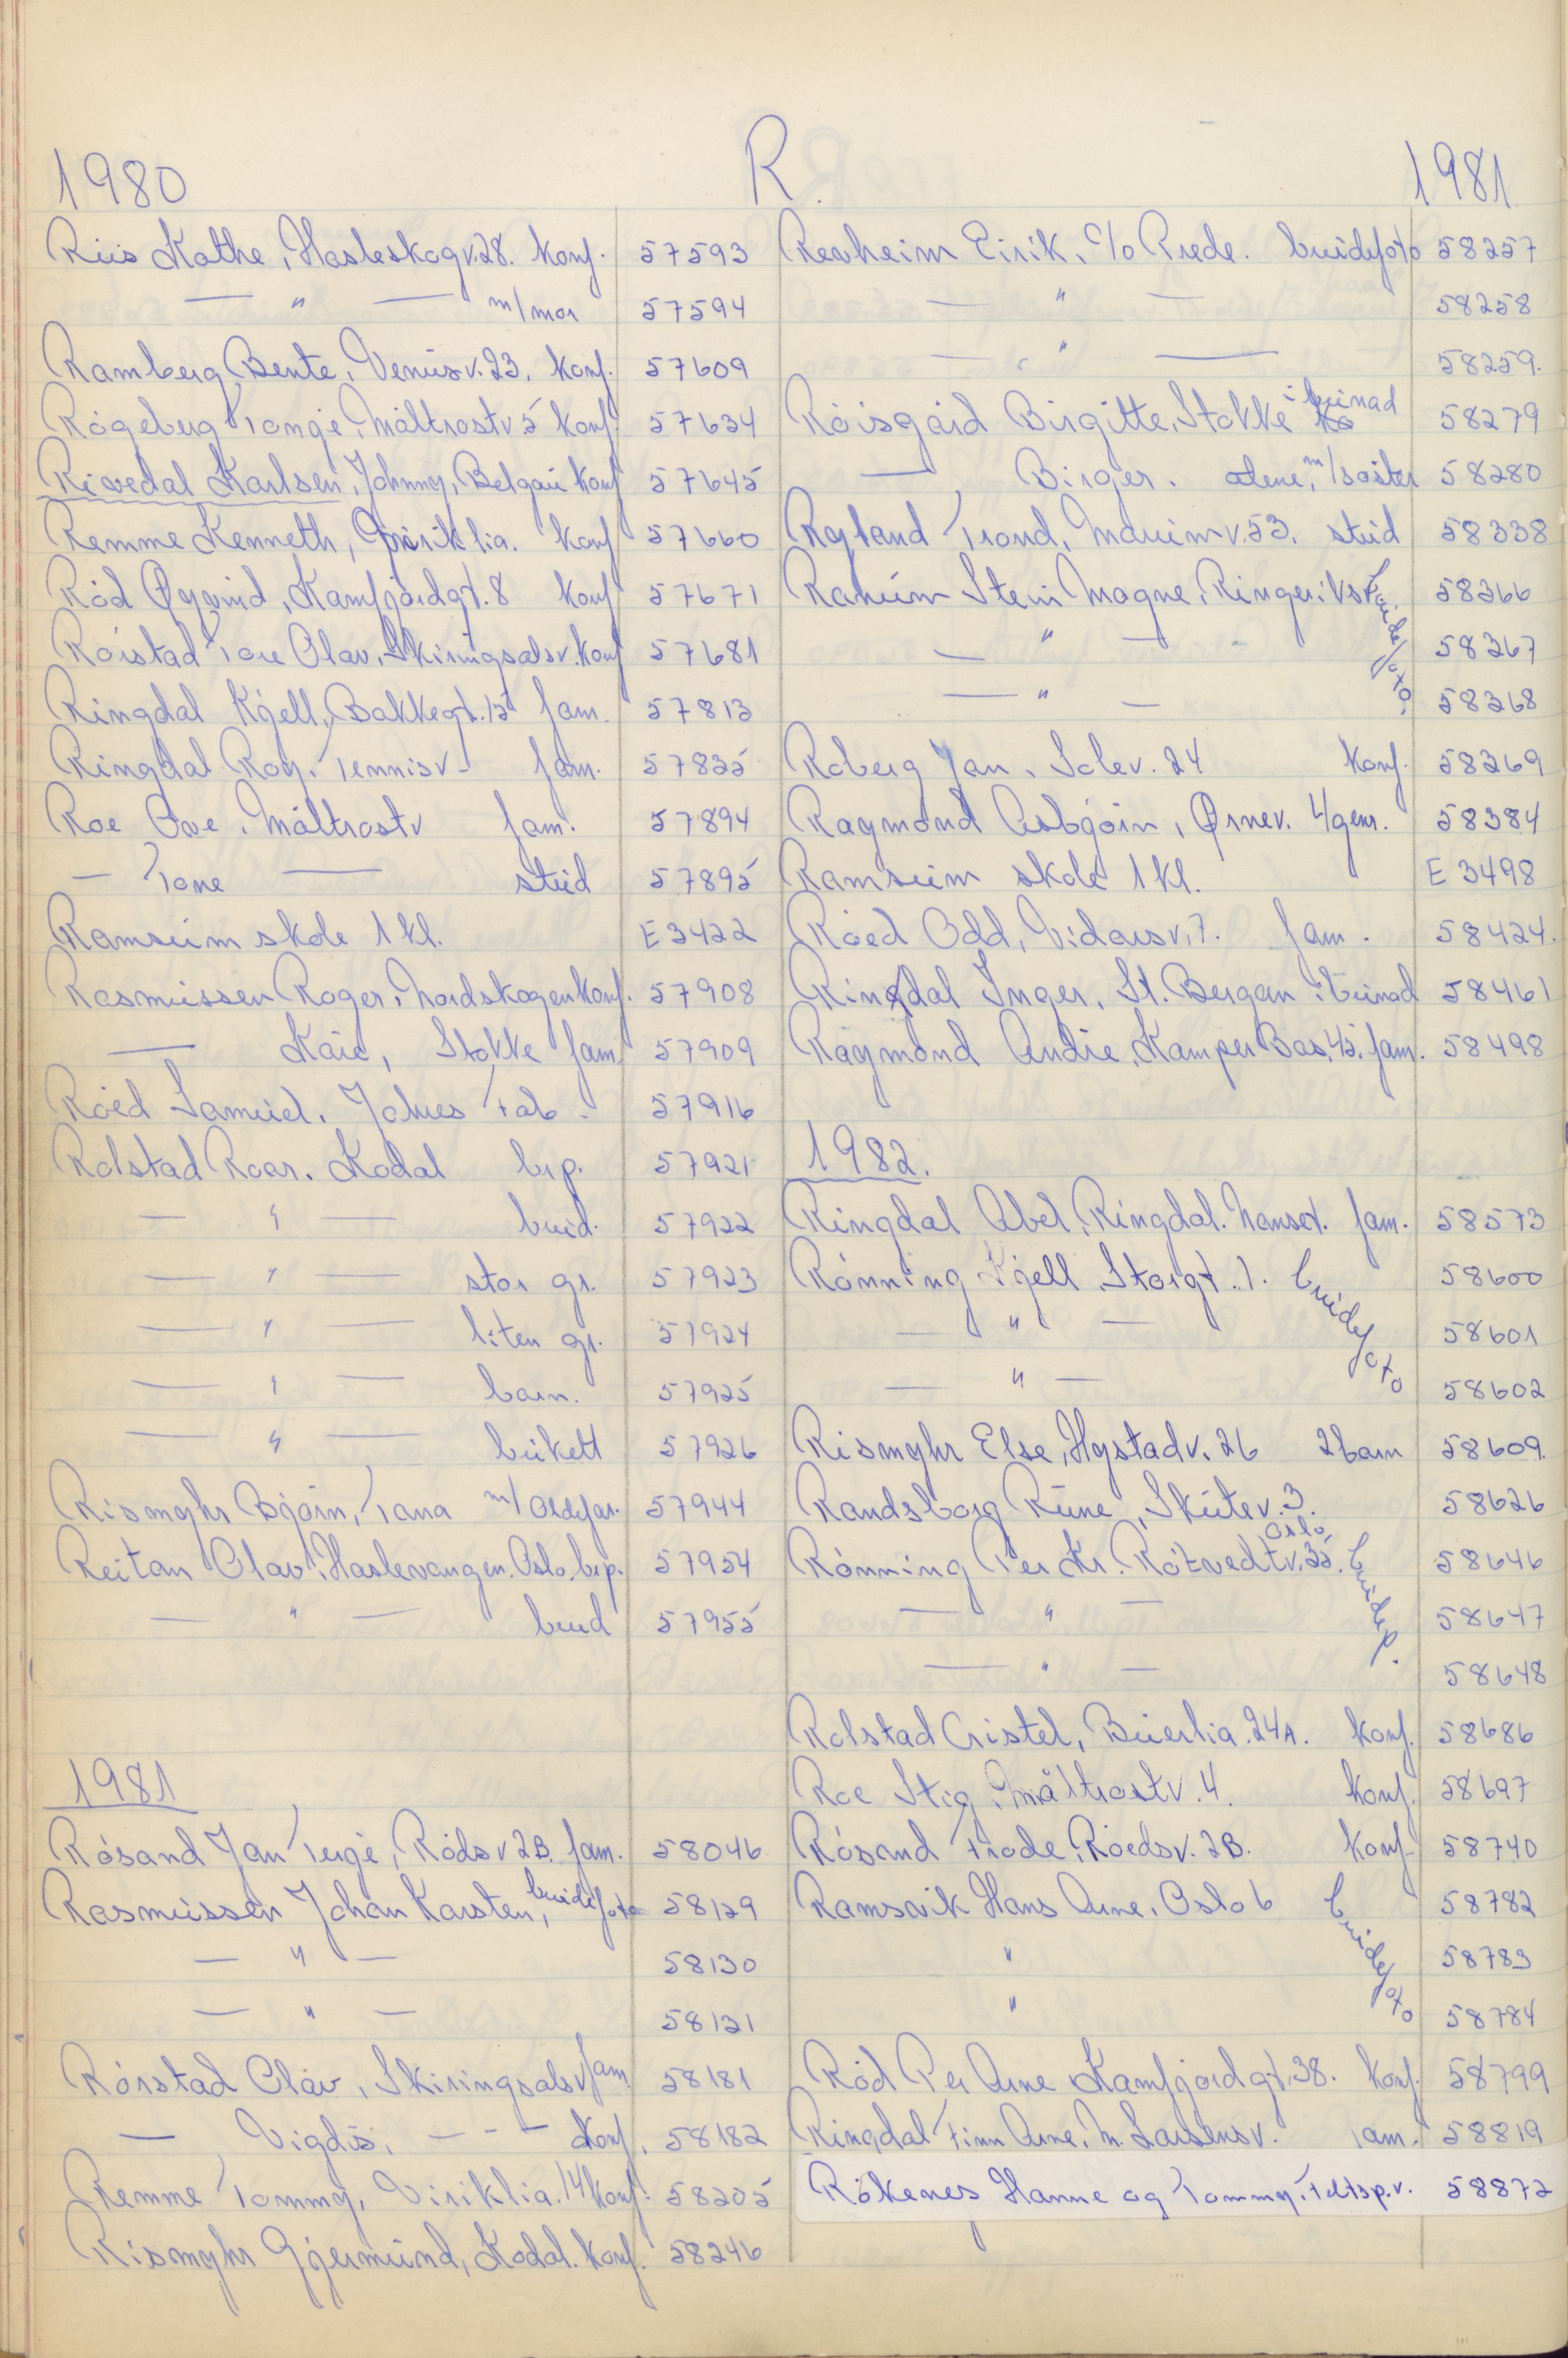 R.
1980
Riis Kathe, Hasleskogv. 28. konf. 57593
— " — m/mor 57594
Ramberg Bente, Venusv. 23. konf. 57609
Rögeberg Tonje, Måltrostv 5 konf. 57634
Rivedal Karlsen, Johnny, Belgau konf 57645
Remme Kenneth, Viriklia. konf 57660
Röd Øyvind, Kamfjordgt. 8 konf 57671
Rörstad Tore Olav, Skiringsalsv. konf 57681
Ringdal Kjell, Bakkegt. 15 fam. 57813
Ringdal Roy, Tennisv - fam. 57835
Roe Ove, Måltrostv fam. 57894
— Tone — stud 57895
Ramsum skole 1 kl. E 3422
Rasmussen Roger, Nordskogen konf. 57908
— Kåre, Stokke fam. 57909
Röed Samuel, Jahres Fab. 57916
Rolstad Roar. Kodal brp. 57921
— " — brud. 57922
— " — stor gr. 57923
— " — liten gr. 57924
— " — barn. 57925
— " — bukett 57926
Rismyhr Bjørn, Tana m/Oldefar. 57944
Reitan Olav, Haslevangen. Oslo. brp. 57954
— " — brud 57955
1981
Rösand Jan Terje, Röds v 2B. fam. 58046
Rasmussen Johan Karsten, brudefoto 58129
— " — 58130
— " — 58131
Rörstad Olav, Skiringsalsv fam 58181
— Vigdis, - - - konf. 58182
Remme Tommy, Viriklia. 14 konf. 58205
Rismyhr Gjermund, Kodal. konf. 58246
1981
Revheim Eirik, c/o Prede. brudefoto 58257
— " — 58258
— " — 58259.
Röisgård Birgitte, Stokke i bunad 58279
— Birger. alene, m/söster 58280
Ryland Trond, Mdrumv. 53. stud 58338
Ranum Stein Magne, Ringeriksv. brudefoto. 58366
— " — 58367
— " — 58368
Roberg Jan, Solev. 24 konf. 58369
Raymond Asbjörn, Ørnev. 4 gener. 58384
Ramsum skole 1 kl. E 3498
Röed Odd, Vidarsv. 7. fam. 58424.
Ringdal Inger, St. Bergan i bunad 58461
Raymond Andre, Kamper Bas, 45. fam. 58498
1982.
Ringdal Abel, Ringdal. Nanset. fam. 58573
Rönning Kjell Storgt. 1. brudefoto 58600
— " — 58601
— " — 58602
Rismyhr Else, Hystadv. 26 2 barn 58609.
Randsborg Rune, Skutev. 3. 58626
Rönning Per Kr. Rötvedtv. 35. Oslo, brudep. 58646
— " — 58647
— " — 58648
Rolstad Cristel, Buerlia. 24A. konf. 58686
Roe Stig, Måltrostv. 4. konf. 58697
Rösand Frode, Röedsv. 2B. konf. 58740
Ramsvik Hans Arne, Oslo 6 brudefoto 58782
" 58783
" 58784
Röd Per Arne Kamfjordgt, 38. konf. 58799
Ringdal Finn Arne, N. Larsensv. fam. 58819
Rökenes Hanne og Tommy, Feltsp.v. 58872